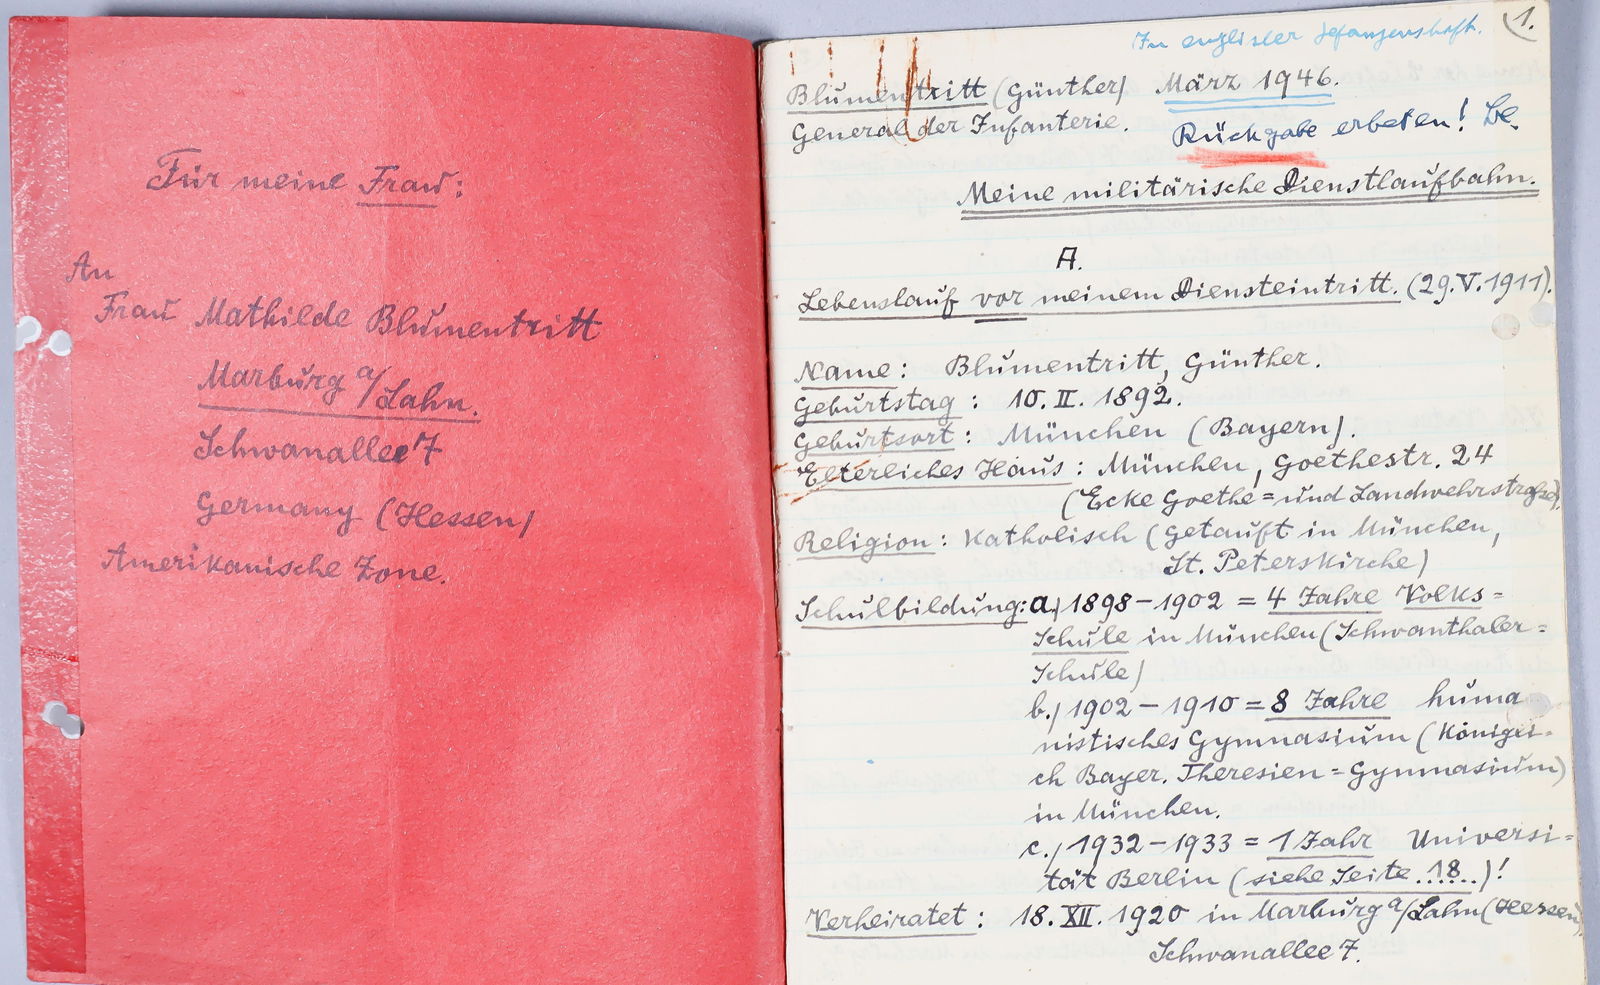 Für meine Frau:
An
Frau Mathilde Blumentritt
Marburg a/Lahn.
Schwanallee 7
Germany (Hessen)
Amerikanische Zone.
1.
In englischer Gefangenschaft.
Blumentritt (Günther) März 1946.
General der Infanterie. Rückgabe erbeten! Be.
Meine militärische Dienstlaufbahn.
A.
Lebenslauf vor meinem Diensteintritt. (29.V.1911).
Name: Blumentritt, Günther.
Geburtstag: 10. II. 1892.
Geburtsort: München (Bayern).
Elterliches Haus: München, Goethestr. 24
(Ecke Goethe= und Landwehrstraße).
Religion: Katholisch (getauft in München,
St. Peterskirche)
Schulbildung: a.) 1898-1902 = 4 Jahre Volks=
schule in München (Schwanthaler=
Schule)
b.) 1902-1910 = 8 Jahre huma
nistisches Gymnasium (Königli=
ch Bayer. Theresien=Gymnasium)
in München.
c.) 1932-1933 = 1 Jahr Universi=
tät Berlin (siehe Seite ..18..)!
Verheiratet: 18. XII. 1920 in Marburg a/Lahn (Hessen),
Schwanallee 7.